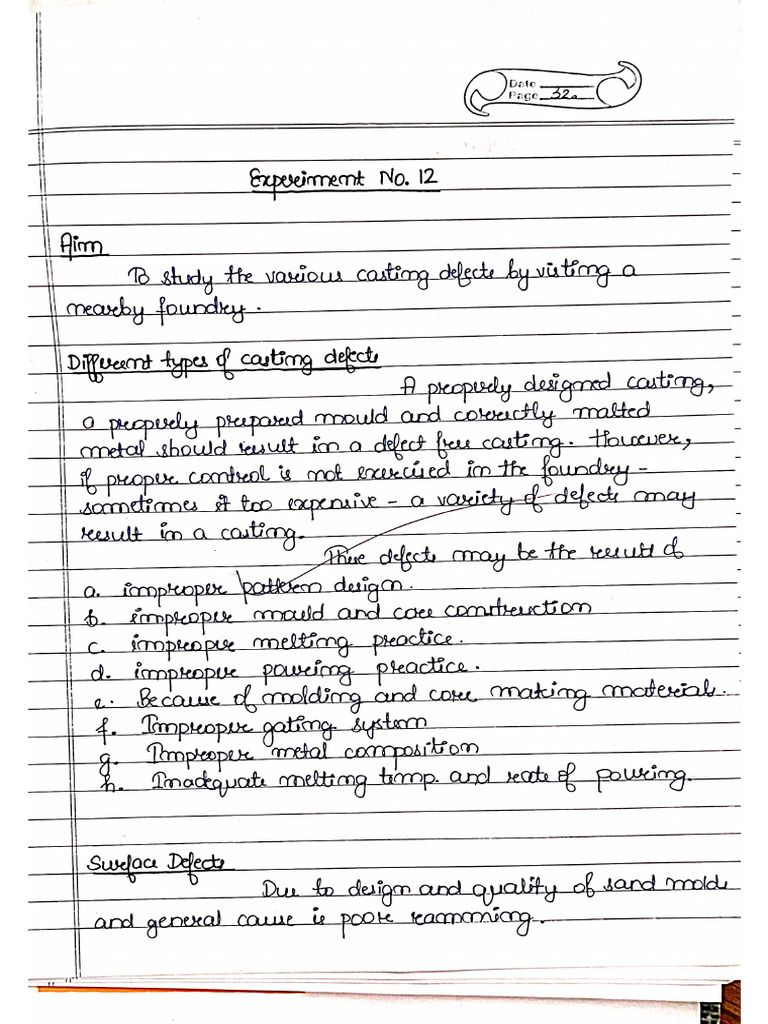 Date
Page 32.
Experiment No. 12
Aim
To study the various casting defects by visting a
nearby foundry.
Different types of casting defects
A properly designed casting,
a properly prepared mould and correctly malted
metal should result in a defect free casting. However,
if proper control is not exercised in the foundry -
sometimes it too expensive - a variety of defects may
result in a casting.
These defects may be the result of
a. improper pattern design.
b. improper mould and core construction
c. improper melting practice.
d. improper pouring practice.
e. Because of molding and core making materials.
f. Improper gating system
g. Improper metal composition
h. Inadequate melting temp. and rate of pouring.
Surface Defects
Due to design and quality of sand molds
and general cause is poor ramming.